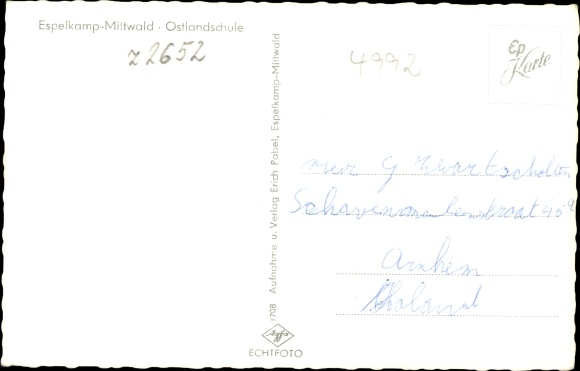 Espelkamp-Mittwald · Ostlandschule
z 2652
4992
Ep
Karte
r708 Aufnahme u. Verlag Erich Pabel, Espelkamp-Mittwald
mevr G Zwartscholten
45a
Arnhem
Holand
Agfa
ECHTFOTO